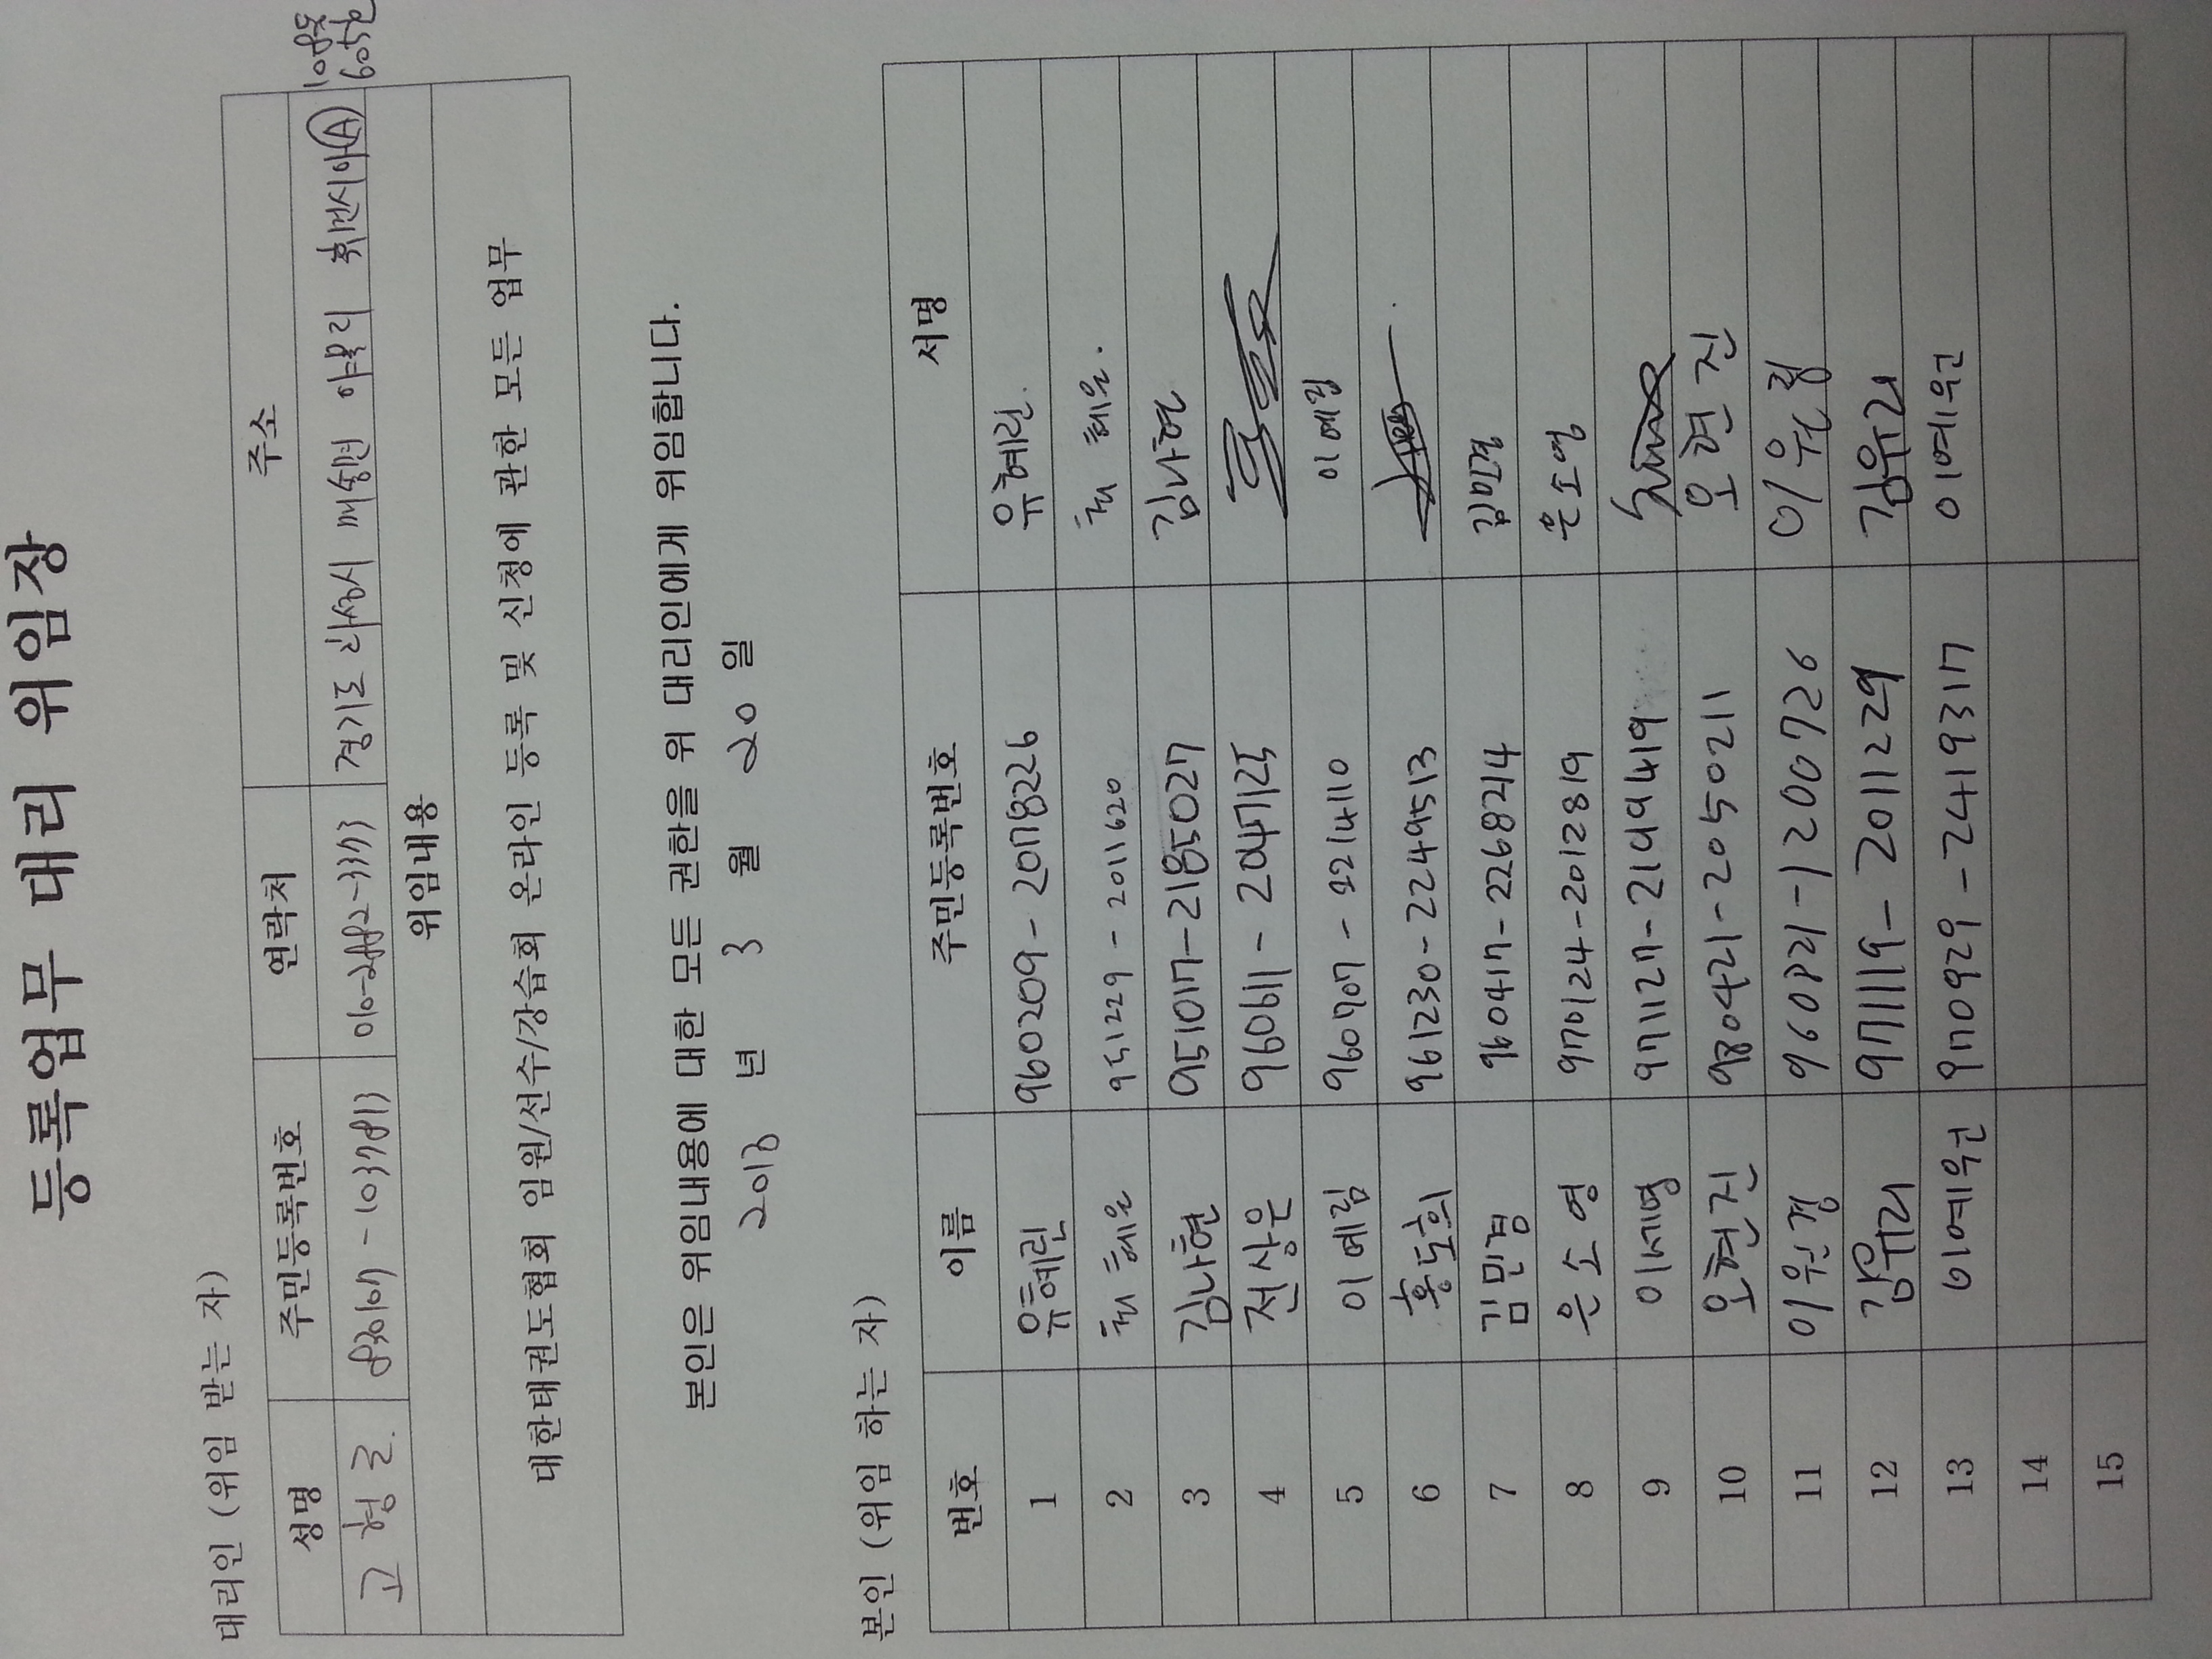 등록업무 대리 위임장
대리인 (위임 받는 자)
성명 주민등록번호 연락처 주소
고형근 경기도 화성시
위임내용
대한태권도협회 임원/선수/강습회 온라인 등록 및 신청에 관한 모든 업무
본인은 위임내용에 대한 모든 권한을 위 대리인에게 위임합니다.
2013 년 3 월 20 일
본인 (위임 하는 자)
번호 이름 주민등록번호 서명
1 유혜린 960209-2078226 유혜린
2 951229-2011620
3 김나현 951017-2185027 김나현
4 전상은 960611-2047125
5 이예림 960707-2214110 이예림
6 홍도희 961230-2249513
7 김민경 960417-2268214 김민경
8 은소영 970124-2012819 은소영
9 이세명 971127-2149419
10 오현진 980421-2050211 오현진
11 이원경 960821-1200726
12 김유리 971119-2011229 김유리
13 이예원 970929-2419317 이예원
14
15